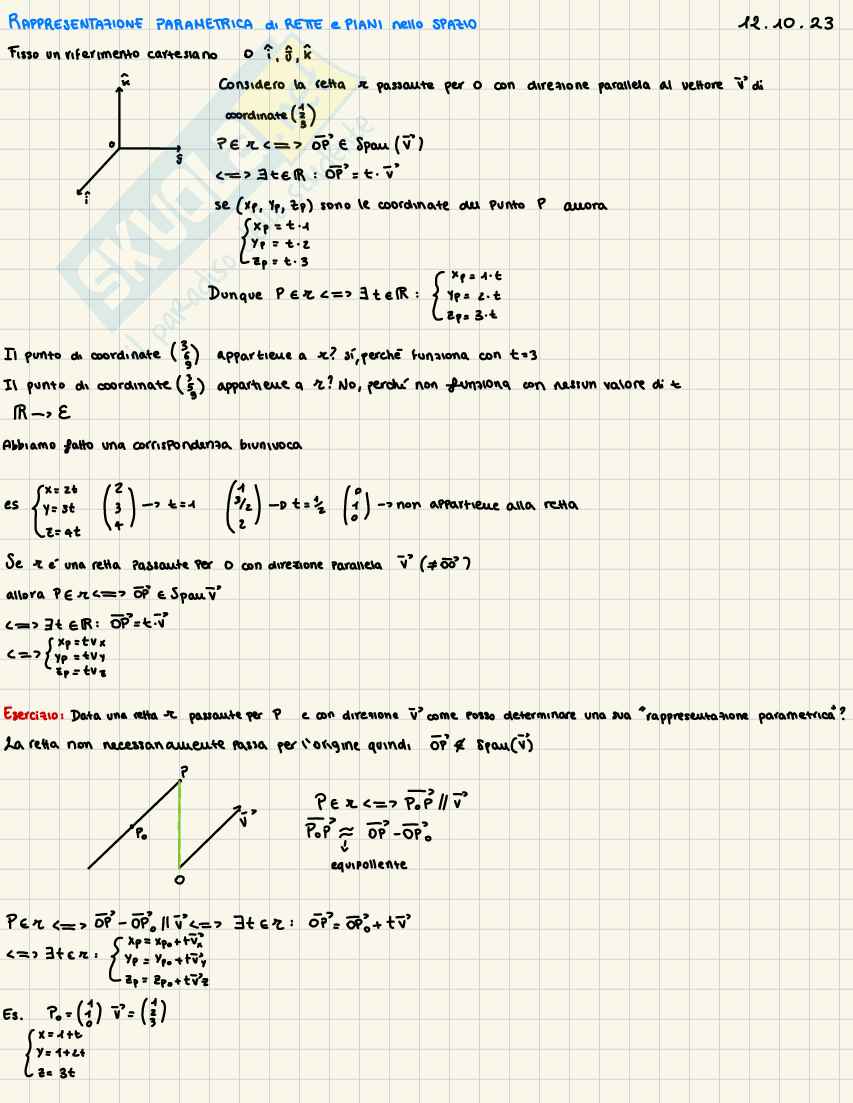 RAPPRESENTAZIONE PARAMETRICA di RETTE e PIANI nello SPAZIO 12.10.23
Fisso un riferimento cartesiano O î, ĵ, k̂
k̂
Considero la retta r passante per O con direzione parallela al vettore v⃗ di
coordinate (1 2 3)
O
ĵ
î
P∈r <=> OP⃗ ∈ Span(v⃗)
<=> ∃t∈ℝ: OP⃗ = t·v⃗
se (xp, yp, zp) sono le coordinate del punto P allora
{ xp = t·1
yp = t·2
zp = t·3
Dunque P∈r <=> ∃t∈ℝ: { xp = 1·t
yp = 2·t
zp = 3·t
Il punto di coordinate (3 6 9) appartiene a r? sí, perché funziona con t=3
Il punto di coordinate (3 5 9) appartiene a r? No, perché non funziona con nessun valore di t
ℝ → ℰ
Abbiamo fatto una corrispondenza biunivoca
es { x=2t y=3t z=4t (2 3 4) → t=1 (1 3/2 2) → t=1/2 (0 1 0) → non appartiene alla retta
Se r é una retta passante per O con direzione parallela v⃗ (≠OO⃗)
allora P∈r <=> OP⃗ ∈ Span v⃗
<=> ∃t∈ℝ: OP⃗ = t·v⃗
<=> { xp = tvx
yp = tvy
zp = tvz
Esercizio: Data una retta r passante per P e con direzione v⃗ come posso determinare una sua "rappresentazione parametrica"?
La retta non necessariamente passa per l'origine quindi OP⃗ ∉ Span(v⃗)
P
P₀
v⃗
O
P∈r <=> P₀P⃗ // v⃗
P₀P⃗ ≈ OP⃗ - OP₀⃗
↓
equipollente
P∈r <=> OP⃗ - OP₀⃗ // v⃗ <=> ∃t∈r: OP⃗ = OP₀⃗ + tv⃗
<=> ∃t∈r: { xp = xp₀ + tv⃗x
yp = yp₀ + tv⃗y
zp = zp₀ + tv⃗z
Es. P₀ = (1 1 0) v⃗ = (1 2 3)
{ x = 1+t
y = 1+2t
z = 3t
SKUOLA.net
il paradiso dello studente